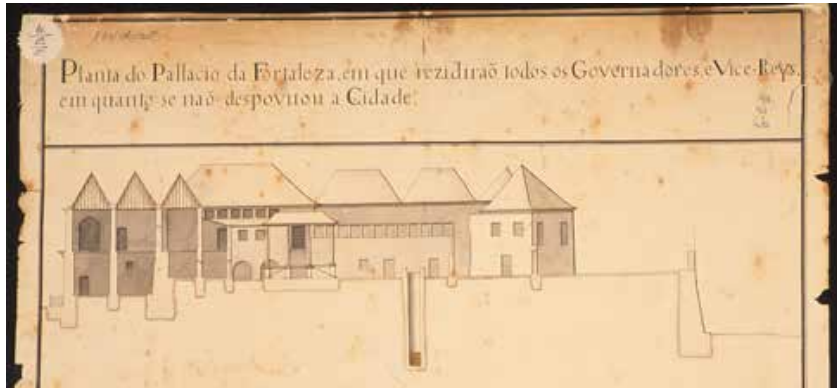 Planta do Pallacio da Fortaleza, em que rezidiraõ todos os Governadores, e Vice-Reys,
em quanto se naõ despovoou a Cidade;